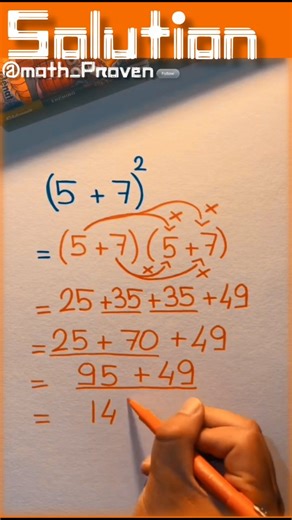 Solution
@maths_Praven Follow
(5 + 7)²
= (5 + 7) (5 + 7)
x x
x x
= 25 + 35 + 35 + 49
= 25 + 70 + 49
= 95 + 49
= 14